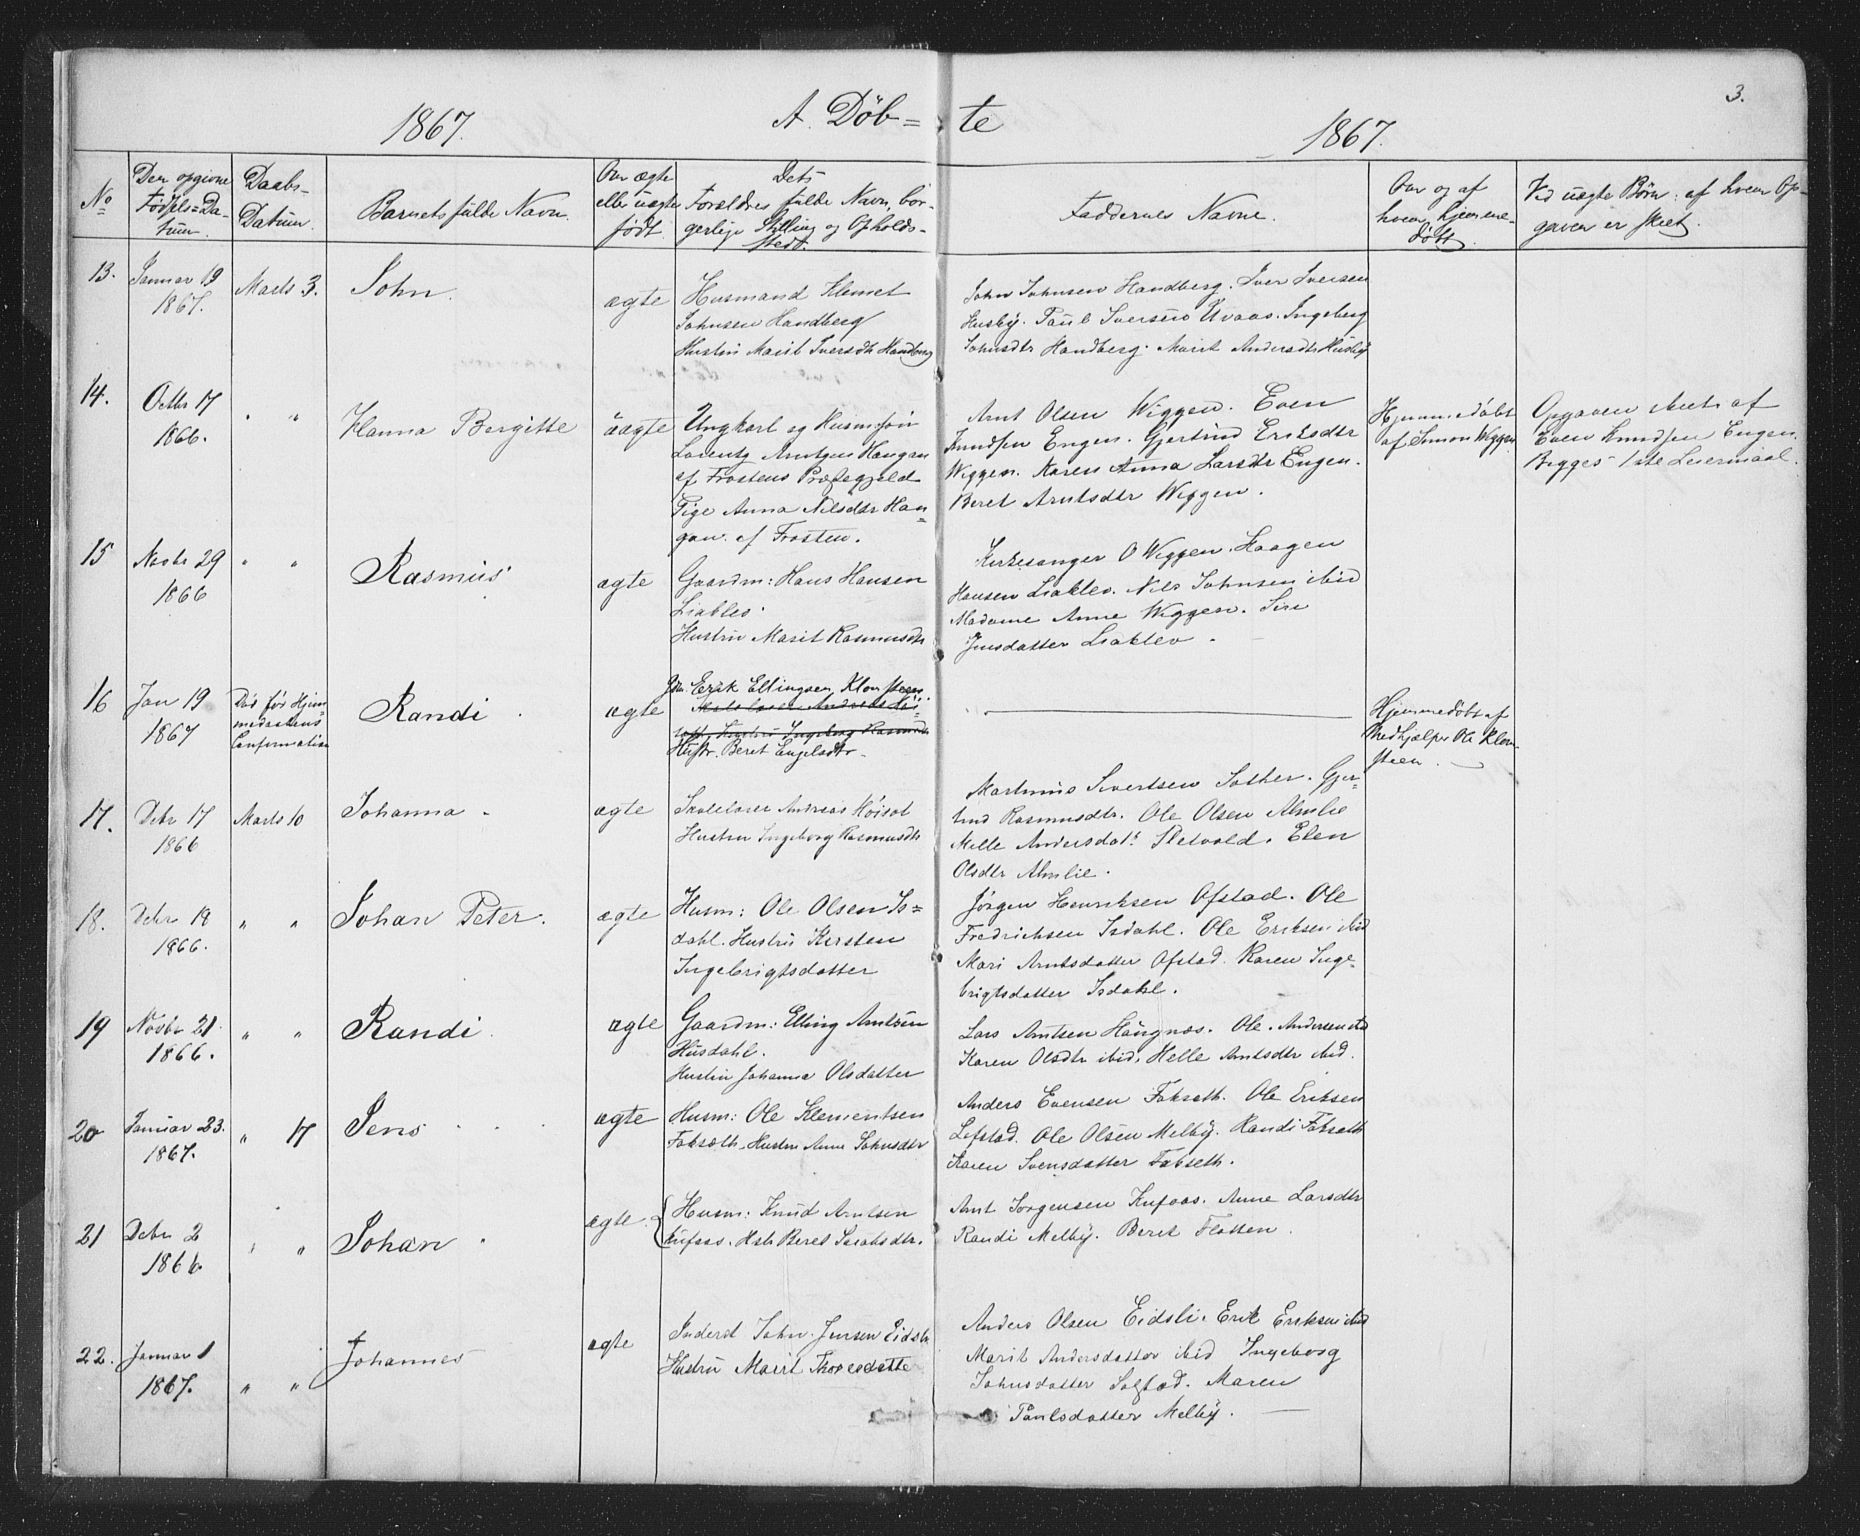 3.
1867. A. Döb=te 1867.
No
Den opgivne
Födsels=Da-
tum.
Daabs-
Datum.
Barnets fulde Navn.
Om ægte
eller uægte
født
Dets
Forældres fulde Navn, bor-
gerlige Stilling og Opholds-
sted.
Faddernes Navne.
Om og af
hvem hjemme-
døbt.
Ved uægte Börn: af hvem Op-
gaven er skeet.
13.
Januar 19
1867.
Marts 3.
John.
ægte
Husmand Klemet
Johnsen Handberg
Hustru Marit Iversdtr Handberg
John Johnsen Handberg. Iver Iversen
Husby. Paul Iversen Uvaas. Ingeberg
Johnsdtr Handberg. Marit Andersdtr Husby
14.
Octbr 17
1866.
" "
Hanna Bergitte
uægte
Ungkarl og Husm: søn
Lorentz Arntsen Haugan
af Frostens Præstegjeld
Pige Anna Nilsdtr Hau=
gan. af Frosten.
Arnt Olsen Wiggen. Even
Knudsen Engen. Gjertrud Eriksdtr
Wiggen. Karen Anna Larsdtr Engen.
Beret Arntsdtr Wiggen.
Hjemmedöbt
af Simon Wiggen
Opgaven skeet af
Even Knudsen Engen.
Begges 1ste Leiermaal.
15
Novbr 29
1866
" "
Rasmus
ægte
Gaardm: Hans Hansen
Liaklev.
Hustru Marit Rasmusdtr
Kirkesanger O Wiggen. Haagen
Hansen Liaklev. Nils Johnsen ibid
Madame Anne Wiggen. Siri
Jensdatter Liaklev.
16
Jan 19
1867
Död før Hjem
medaabens
Confirmation
Randi.
ægte
Gm. Erik Ellingsen Klonsteen.
Skolelærer Andreas Höi-
Hustru Ingeberg Rasmusdtr
Hustr. Beret Engelsdtr.
Hjemmedöbt af
Medhjælper Ole Klon-
steen.
17.
Debr 17
1866
Marts 10
Johanna.
ægte
Skolelærer Andreas Höisæt
Hustru Ingeborg Rasmusdtr
Martinus Sivertsen Sæther. Gjer-
trud Rasmusdtr. Ole Olsen Almlie
Melle Andersdatr Sletvold. Elen
Olsdtr Almlie.
18.
Debr 19
1866.
" "
Johan Peter.
ægte
Husm: Ole Olsen Is=
dahl. Hustru Kirsten
Ingebrigtsdatter
Jørgen Henriksen Ofstad. Ole
Fredrichsen Isdahl. Ole Eriksen ibid
Mari Arntsdatter Ofstad. Karen Inge-
brigtsdatter Isdahl.
19
Novbr 21.
1866.
" "
Randi.
ægte
Gaardm: Elling Arntsen
Husdahl.
Hustru Johanna Olsdatter
Lars Arntsen Haugnæs. Ole Andersen ibid
Karen Olsdtr ibid. Helle Arntsdtr ibid.
20
Januar 23.
1867.
" 17
Jens
ægte
Husm: Ole Klementsen
Fakseth. Hustru Anne Johnsdtr
Anders Evensen Fakseth. Ole Eriksen
Lefstad. Ole Olsen Melby. Randi Fakseth
Karen Svensdatter Fakseth.
21
Debr 2
1866.
" "
Johan.
ægte.
Husm: Knud Arntsen
Kufaas. Hstr Beret Jacobsdtr.
Arnt Jorgensen Kufaas. Anne Larsdtr
Randi Melby. Beret Flotten.
22.
Januar 1
1867.
" "
Johannes
ægte
Inderst John Jensen Eidsli
Hustru Marit Thoresdatter
Anders Olsen Eidsli. Erik Eriksen ibid
Marit Andersdatter ibid Ingeborg
Johnsdatter Solstad. Maren
Paulsdatter Melby.